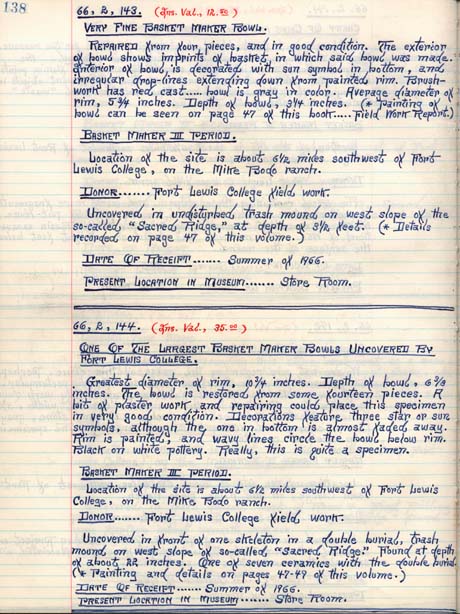 138
66, 2, 143. (Ins. Val., 12.50)
VERY FINE BASKET MAKER BOWL.
REPAIRED from four pieces, and in good condition. The exterior
of bowl shows imprints of basket, in which said bowl was made.
Interior of bowl is decorated with sun symbol in bottom, and
irregular drop-lines extending down from painted rim. Brush-
work has red cast.... bowl is gray in color. Average diameter of
rim, 5 3/4 inches. Depth of bowl, 3 1/4 inches. (* Painting of
bowl can be seen on page 47 of this book..... Field Work Report.)
BASKET MAKER III PERIOD.
Location of the site is about 6 1/2 miles southwest of Fort
Lewis College, on the Mike Bodo ranch.
DONOR....... Fort Lewis College field work.
Uncovered in undisturbed trash mound on west slope of the
so-called, "Sacred Ridge," at depth of 3 1/2 feet. (* Details
recorded on page 47 of this volume.)
DATE OF RECEIPT....... Summer of 1966.
PRESENT LOCATION IN MUSEUM....... Store Room.
66, 2, 144. (Ins. Val., 35.00)
ONE OF THE LARGEST BASKET MAKER BOWLS UNCOVERED BY
FORT LEWIS COLLEGE.
Greatest diameter of rim, 10 3/4 inches. Depth of bowl,
inches. The bowl is restored from some fourteen pieces. A
bit of plaster work, and repairing could place this specimen
in very good condition. Decorations feature three star or sun
symbols, although the one in bottom is almost faded away.
Rim is painted, and wavy lines circle the bowl below rim.
Black on white pottery. Really, this is quite a specimen.
BASKET MAKER III PERIOD.
Location of the site is about 6 1/2 miles southwest of Fort Lewis
College, on the Mike Bodo ranch.
DONOR....... Fort Lewis College field work.
Uncovered in front of one skeleton in a double burial, trash
mound on west slope of so-called "Sacred Ridge." Found at depth
of about 22 inches. One of seven ceramics with the double burial.
(* Painting and details on pages 47-49 of this volume.)
DATE OF RECEIPT....... Summer of 1966.
PRESENT LOCATION IN MUSEUM....... Store Room.